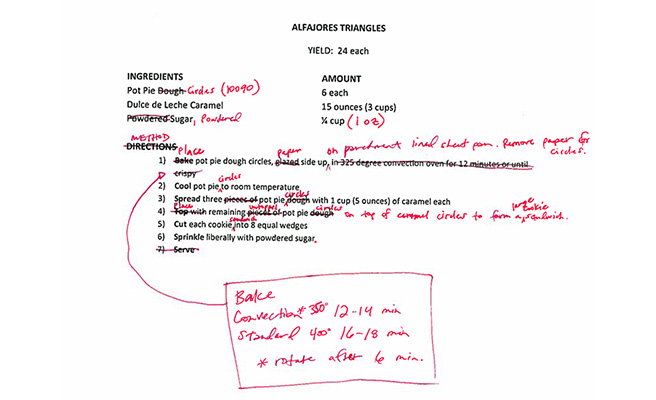 ALFAJORES TRIANGLES
YIELD: 24 each
INGREDIENTS AMOUNT
Pot Pie Dough Circles (10090) 6 each
Dulce de Leche Caramel 15 ounces (3 cups)
Powdered Sugar, Powdered ¼ cup (1 oz)
METHOD
DIRECTIONS
1) Bake place pot pie dough circles, glazed paper side up, in 325 degree convection oven for 12 minutes or until on parchment lined sheet pan. Remove paper for circles.
crispy
2) Cool pot pie circles to room temperature
3) Spread three pieces of pot pie dough circles with 1 cup (5 ounces) of caramel each
4) Top with place remaining pieces of pot pie dough circles on top of caramel circles to form a large cookie sandwich.
5) Cut each cookie sandwich into 8 equal wedges
6) Sprinkle liberally with powdered sugar.
7) Serve
Bake
Convection* 350° 12-14 min
Standard 400° 16-18 min
* rotate after 6 min.